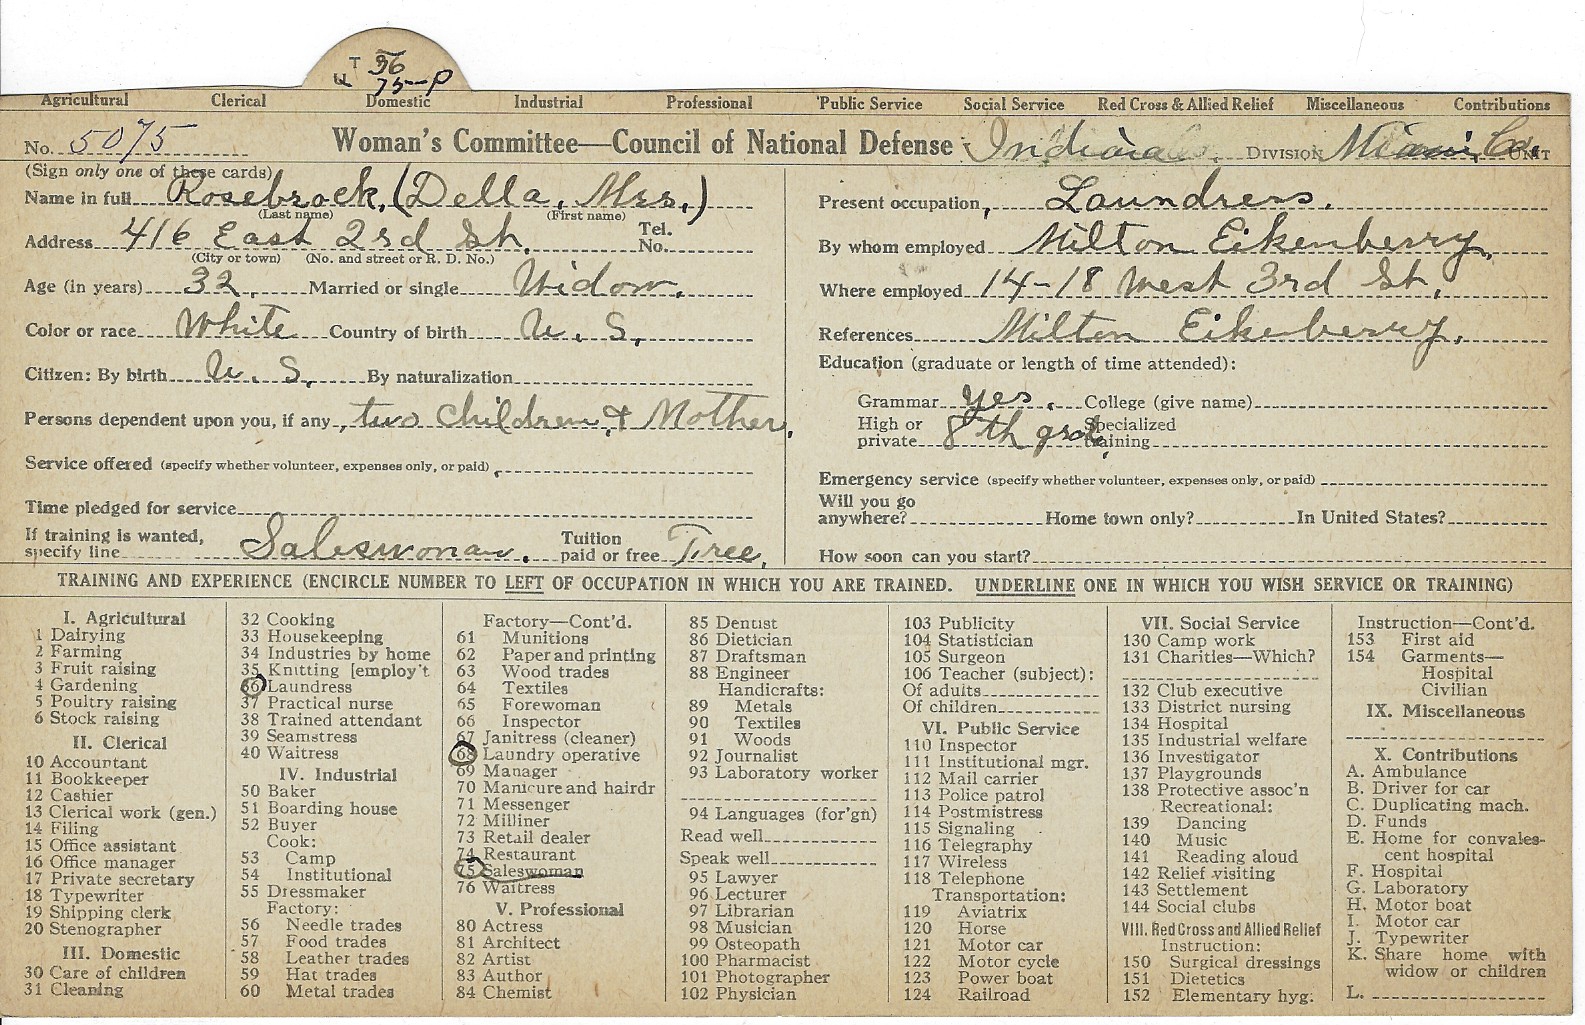 T 36
F 75-P
Agricultural Clerical Domestic Industrial Professional Public Service Social Service Red Cross & Allied Relief Miscellaneous Contributions
No. 5075 Woman's Committee—Council of National Defense Indiana DIVISION Miami Co. UNIT
(Sign only one of these cards)
Name in full Rosebrock, (Della, Mrs.)
(Last name) (First name)
Address 416 East 2nd St. Tel. No.
(City or town) (No. and street or R. D. No.)
Age (in years) 32. Married or single Widow.
Color or race White Country of birth U. S.
Citizen: By birth U. S. By naturalization
Persons dependent upon you, if any, two children, & Mother.
Service offered (specify whether volunteer, expenses only, or paid)
Time pledged for service
If training is wanted, specify line Saleswoman. Tuition paid or free Free.
Present occupation, Laundress.
By whom employed Milton Eikenberry,
Where employed 14-18 West 3rd St.
References Milton Eikenberry.
Education (graduate or length of time attended):
Grammar yes. College (give name)
High or private 8th grd. Specialized training
Emergency service (specify whether volunteer, expenses only, or paid)
Will you go
anywhere? Home town only? In United States?
How soon can you start?
TRAINING AND EXPERIENCE (ENCIRCLE NUMBER TO LEFT OF OCCUPATION IN WHICH YOU ARE TRAINED. UNDERLINE ONE IN WHICH YOU WISH SERVICE OR TRAINING)
I. Agricultural
1 Dairying
2 Farming
3 Fruit raising
4 Gardening
5 Poultry raising
6 Stock raising
II. Clerical
10 Accountant
11 Bookkeeper
12 Cashier
13 Clerical work (gen.)
14 Filing
15 Office assistant
16 Office manager
17 Private secretary
18 Typewriter
19 Shipping clerk
20 Stenographer
III. Domestic
30 Care of children
31 Cleaning
32 Cooking
33 Housekeeping
34 Industries by home
35 Knitting [employ't
36 Laundress
37 Practical nurse
38 Trained attendant
39 Seamstress
40 Waitress
IV. Industrial
50 Baker
51 Boarding house
52 Buyer
Cook:
53 Camp
54 Institutional
55 Dressmaker
Factory:
56 Needle trades
57 Food trades
58 Leather trades
59 Hat trades
60 Metal trades
Factory—Cont'd.
61 Munitions
62 Paper and printing
63 Wood trades
64 Textiles
65 Forewoman
66 Inspector
67 Janitress (cleaner)
68 Laundry operative
69 Manager
70 Manicure and hairdr
71 Messenger
72 Milliner
73 Retail dealer
74 Restaurant
75 Saleswoman
76 Waitress
V. Professional
80 Actress
81 Architect
82 Artist
83 Author
84 Chemist
85 Dentist
86 Dietician
87 Draftsman
88 Engineer
Handicrafts:
89 Metals
90 Textiles
91 Woods
92 Journalist
93 Laboratory worker
94 Languages (for'gn)
Read well
Speak well
95 Lawyer
96 Lecturer
97 Librarian
98 Musician
99 Osteopath
100 Pharmacist
101 Photographer
102 Physician
103 Publicity
104 Statistician
105 Surgeon
106 Teacher (subject):
Of adults
Of children
VI. Public Service
110 Inspector
111 Institutional mgr.
112 Mail carrier
113 Police patrol
114 Postmistress
115 Signaling
116 Telegraphy
117 Wireless
118 Telephone
Transportation:
119 Aviatrix
120 Horse
121 Motor car
122 Motor cycle
123 Power boat
124 Railroad
VII. Social Service
130 Camp work
131 Charities—Which?
132 Club executive
133 District nursing
134 Hospital
135 Industrial welfare
136 Investigator
137 Playgrounds
138 Protective assoc'n
Recreational:
139 Dancing
140 Music
141 Reading aloud
142 Relief visiting
143 Settlement
144 Social clubs
VIII. Red Cross and Allied Relief
Instruction:
150 Surgical dressings
151 Dietetics
152 Elementary hyg.
Instruction—Cont'd.
153 First aid
154 Garments—
Hospital
Civilian
IX. Miscellaneous
X. Contributions
A. Ambulance
B. Driver for car
C. Duplicating mach.
D. Funds
E. Home for convales-
cent hospital
F. Hospital
G. Laboratory
H. Motor boat
I. Motor car
J. Typewriter
K. Share home with
widow or children
L.